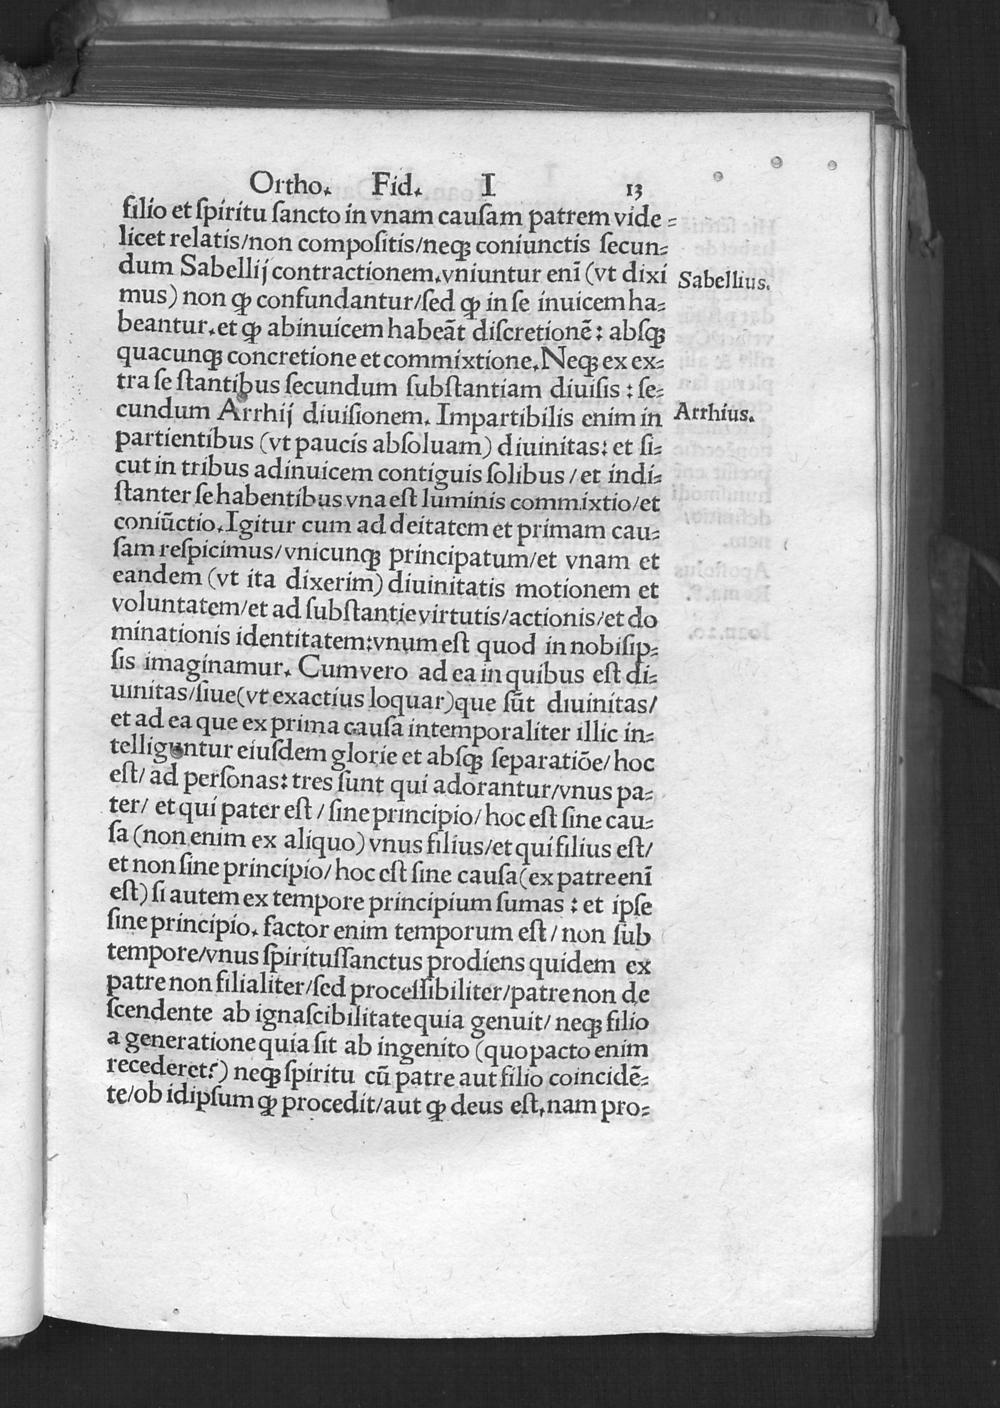 Ortho. Fid. I 13
filio et ſpiritu ſancto in vnam cauſam patrem vide⸗
licet relatis/non compoſitis/neqꝫ coniunctis ſecun⸗
dum Sabellij contractionem.vniuntur enī (vt dixi
Sabellius.
mus) non ꝙ confundantur/ſed ꝙ in ſe inuicem ha⸗
beantur.et ꝙ abinuicem habeāt diſcretionē: abſqꝫ
quacunqꝫ concretione et commixtione.Neqꝫ ex ex⸗
tra ſe ſtantibus ſecundum ſubſtantiam diuiſis : ſe⸗
cundum Arrhij diuiſionem. Impartibilis enim in
Arrhius.
partientibus (vt paucis abſoluam) diuinitas: et ſi⸗
cut in tribus adinuicem contiguis ſolibus / et indi⸗
ſtanter ſe habentibus vna eſt luminis commixtio/et
coniūctio.Igitur cum ad deitatem et primam cau⸗
ſam reſpicimus/vnicunqꝫ principatum/et vnam et
eandem (vt ita dixerim) diuinitatis motionem et
voluntatem/et ad ſubſtantie virtutis/actionis/et do
minationis identitatem:vnum eſt quod in nobiſip⸗
ſis imaginamur. Cum vero ad ea in quibus eſt di⸗
uinitas/ſiue(vt exactius loquar)que ſūt diuinitas/
et ad ea que ex prima cauſa intemporaliter illic in⸗
telliguntur eiuſdem glorie et abſqꝫ ſeparatiōe/hoc
eſt/ ad perſonas:tres ſunt qui adorantur/vnus pa⸗
ter/ et qui pater eſt / ſine principio/ hoc eſt ſine cau⸗
ſa (non enim ex aliquo) vnus filius/et qui filius eſt/
et non ſine principio/ hoc eſt ſine cauſa(ex patre enī
eſt) ſi autem ex tempore principium ſumas : et ipſe
ſine principio. factor enim temporum eſt / non ſub
tempore/vnus ſpirituſſanctus prodiens quidem ex
patre non filialiter/ſed proceſſibiliter/patre non de
ſcendente ab ignaſcibilitate quia genuit/ neqꝫ filio
a generatione quia ſit ab ingenito (quo pacto enim
recederet?) neqꝫ ſpiritu cū patre aut filio coincidē⸗
te/ob idipſum ꝙ procedit/aut ꝙ deus eſt.nam pro⸗